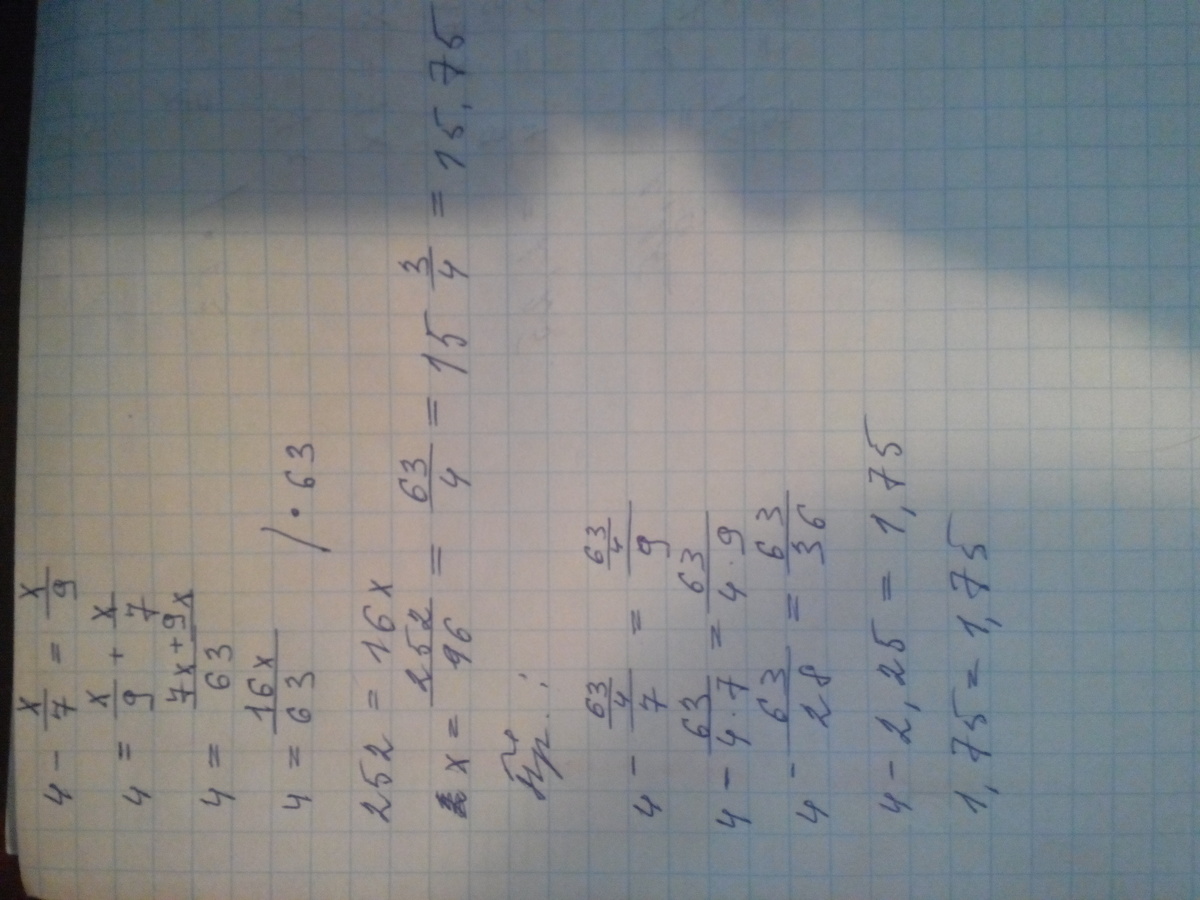 4 - x/7 = x/9
4 = x/9 + x/7
4 = (7x+9x)/63
4 = 16x/63 /·63
252 = 16x
x = 252/96 = 63/4 = 15 3/4 = 15,75
Пр.:
4 - (63/4)/7 = (63/4)/9
4 - 63/(4·7) = 63/(4·9)
4 - 63/28 = 63/36
4 - 2,25 = 1,75
1,75 = 1,75